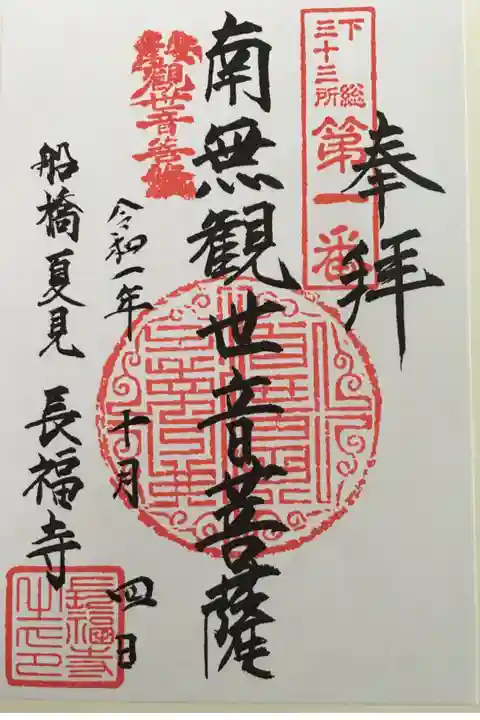 奉拝
下総三十三所
第一番
南無観世音菩薩
観世音菩薩
令和一年
十月
四日
船橋夏見
長福寺
長福寺之印